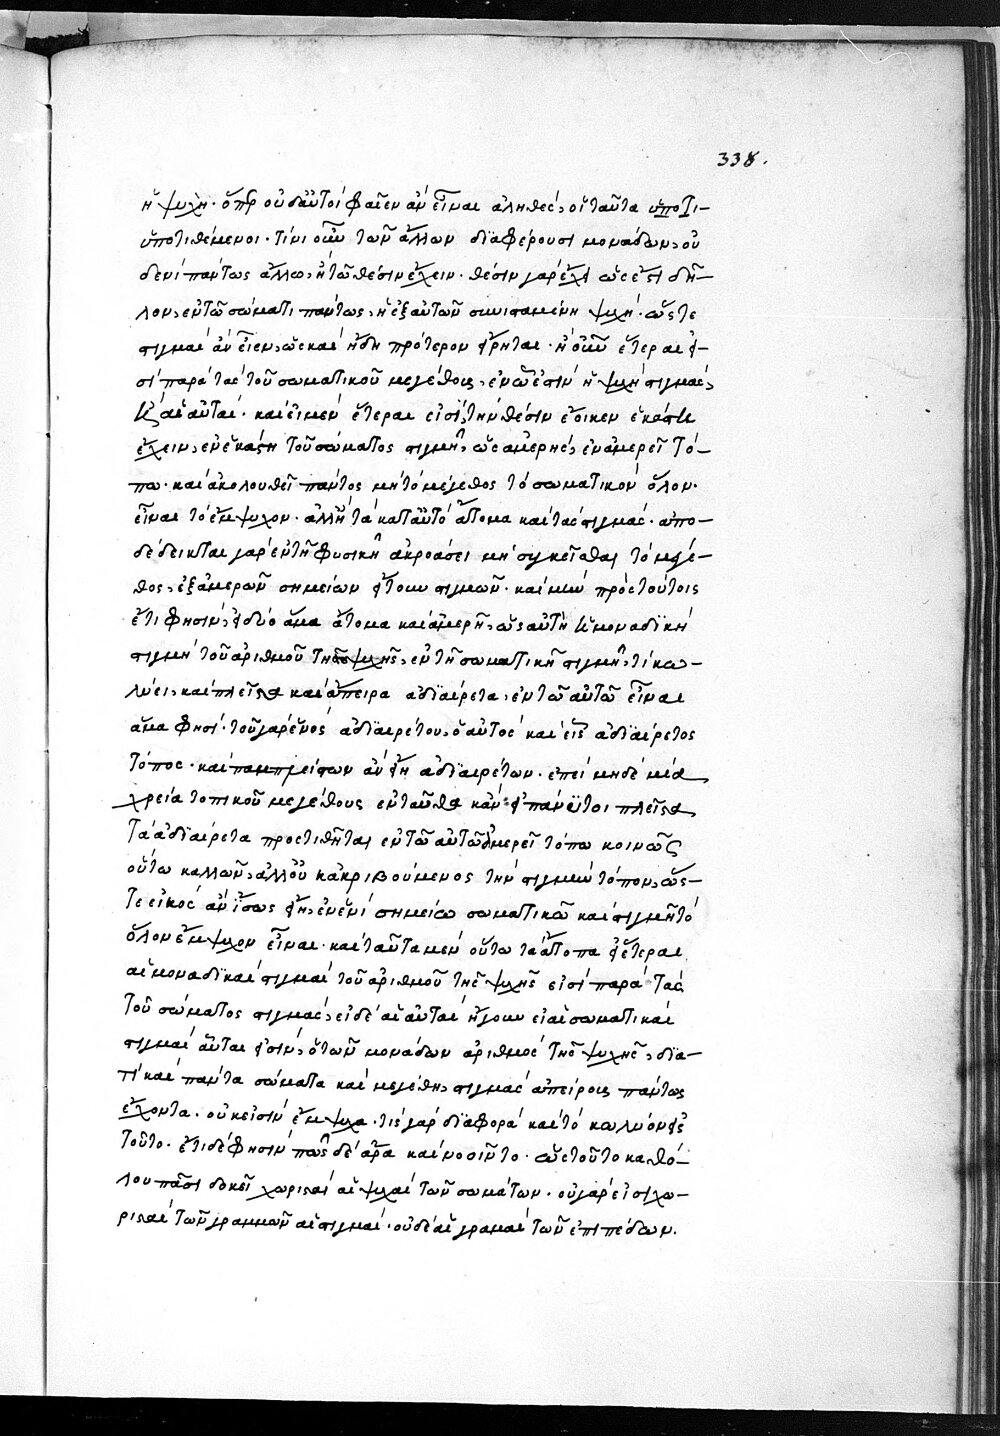 338.
ἡ ψυχὴ· ὅπερ οὐδ' αὐτοί φαῖεν ἂν εἶναι ἀληθές, οἱ ταῦτα ὑποτι-
ὑποτιθέμενοι· τίνι οὖν τῶν ἄλλων διαφέρουσι μονάδων, οὐ
δενὶ πάντως ἄλλῳ, ἢ τῷ θέσιν ἔχειν· θέσιν γὰρ ἔχει ὡς ἔστι δῆ-
λον, ἐν τῷ σώματι πάντως, ἡ ἐξ αὐτῶν συνισταμένη ψυχή· ὥστε
στιγμαὶ ἂν εἶεν, ὡς καὶ ἤδη πρότερον εἴρηται· ἢ οὖν ἕτεραί εἰ-
σι παρὰ τὰς τοῦ σωματικοῦ μεγέθους, ἐν ᾧ ἐστὶν ἡ ψυχὴ στιγμάς,
ἢ αἱ αὐταί· καὶ εἰ μὲν ἕτεραι εἰσί, τὴν θέσιν ἔοικεν ἑκάστη
ἔχειν, ἐν ἑκάστη τοῦ σώματος στιγμῆ, ὡς ἀμερὴς, ἐν ἀμερεῖ τό-
πω· καὶ ἀκολουθεῖ πάντως μὴ τὸ μέγεθος τὸ σωματικὸν ὅλον·
εἶναι τὸ ἔμψυχον· ἀλλ' ἢ τὰ κατ' αὐτὸ ἄτομα καὶ τὰς στιγμάς· ἀπο-
δέδεικται γὰρ ἐν τῇ φυσικῇ ἀκροάσει μὴ συγκεῖσθαι τὸ μέγε-
θος, ἐξ ἀμερῶν σημείων ἤτοι στιγμῶν· καὶ μὴν πρὸς τούτοις
ἔτι φησίν, εἰ δύο ἅμα ἄτομα καὶ ἀμερῆ, ὡς αὐτὴ ἡ μοναδικὴ
στιγμὴ τοῦ ἀριθμοῦ τῆς ψυχῆς, ἐν τῇ σωματικῇ στιγμῇ, τί κω-
λύει, καὶ πλεῖστα καὶ ἄπειρα ἀδιαίρετα, ἐν τῷ αὐτῷ εἶναι
ἅμα φησί· τοῦ γὰρ ἑνὸς ἀδιαιρέτου, ὁ αὐτὸς καὶ εἷς ἀδιαίρετος
τόπος· καὶ παμπλείστων ἂν εἴη ἀδιαιρέτων· ἐπεὶ μηδὲ μία
χρεία τοπικοῦ μεγέθους ἐνταῦθα κἂν εἰ πάντοι πλεῖστα
τὰ ἀδιαίρετα προστιθῆται ἐν τῷ αὐτῷ ἀμερεῖ τόπω κοινῶς
οὕτω καλλῶν, ἀλλ' οὐ κἀκριβούμενος τὴν στιγμὴν τόπον, ὥς-
τε εἰκὸς ἂν ἴσως εἴη, ἐν ἑνὶ σημείῳ σωματικῷ καὶ στιγμῇ τὸ
ὅλον ἔμψυχον εἶναι· καὶ ταῦτα μὲν οὕτω τὰ ἄτοπα εἰ ἕτεραι
αἱ μοναδικαὶ στιγμαὶ τοῦ ἀριθμοῦ τῆς ψυχῆς εἰσὶ παρὰ τὰς
τοῦ σώματος στιγμάς, εἰ δὲ αἱ αὐταὶ ἤγουν εἰ αἱ σωματικαὶ
στιγμαὶ αὗται εἰσιν, ὁ τῶν μονάδων ἀριθμὸς τῆς ψυχῆς, δια-
τί καὶ πάντα σώματα καὶ μεγέθη, στιγμὰς ἀπείρους πάντως
ἔχοντα· οὐκ εἰσὶν ἔμψυχα· τίς γὰρ διαφορὰ καὶ τὸ κωλύον εἰς
τοῦτο· ἔτι δέ φησιν πῶς δὲ ἄρα καὶ νοοῖντο· ὡς τοῦτο καθό-
λου πᾶσι δοκεῖ χωρισταὶ αἱ ψυχαὶ τῶν σωμάτων· οὐ γὰρ εἰσὶ χω-
ρισταὶ τῶν γραμμῶν αἱ στιγμαί· οὐδὲ αἱ γραμαὶ τῶν ἐπιπέδων.